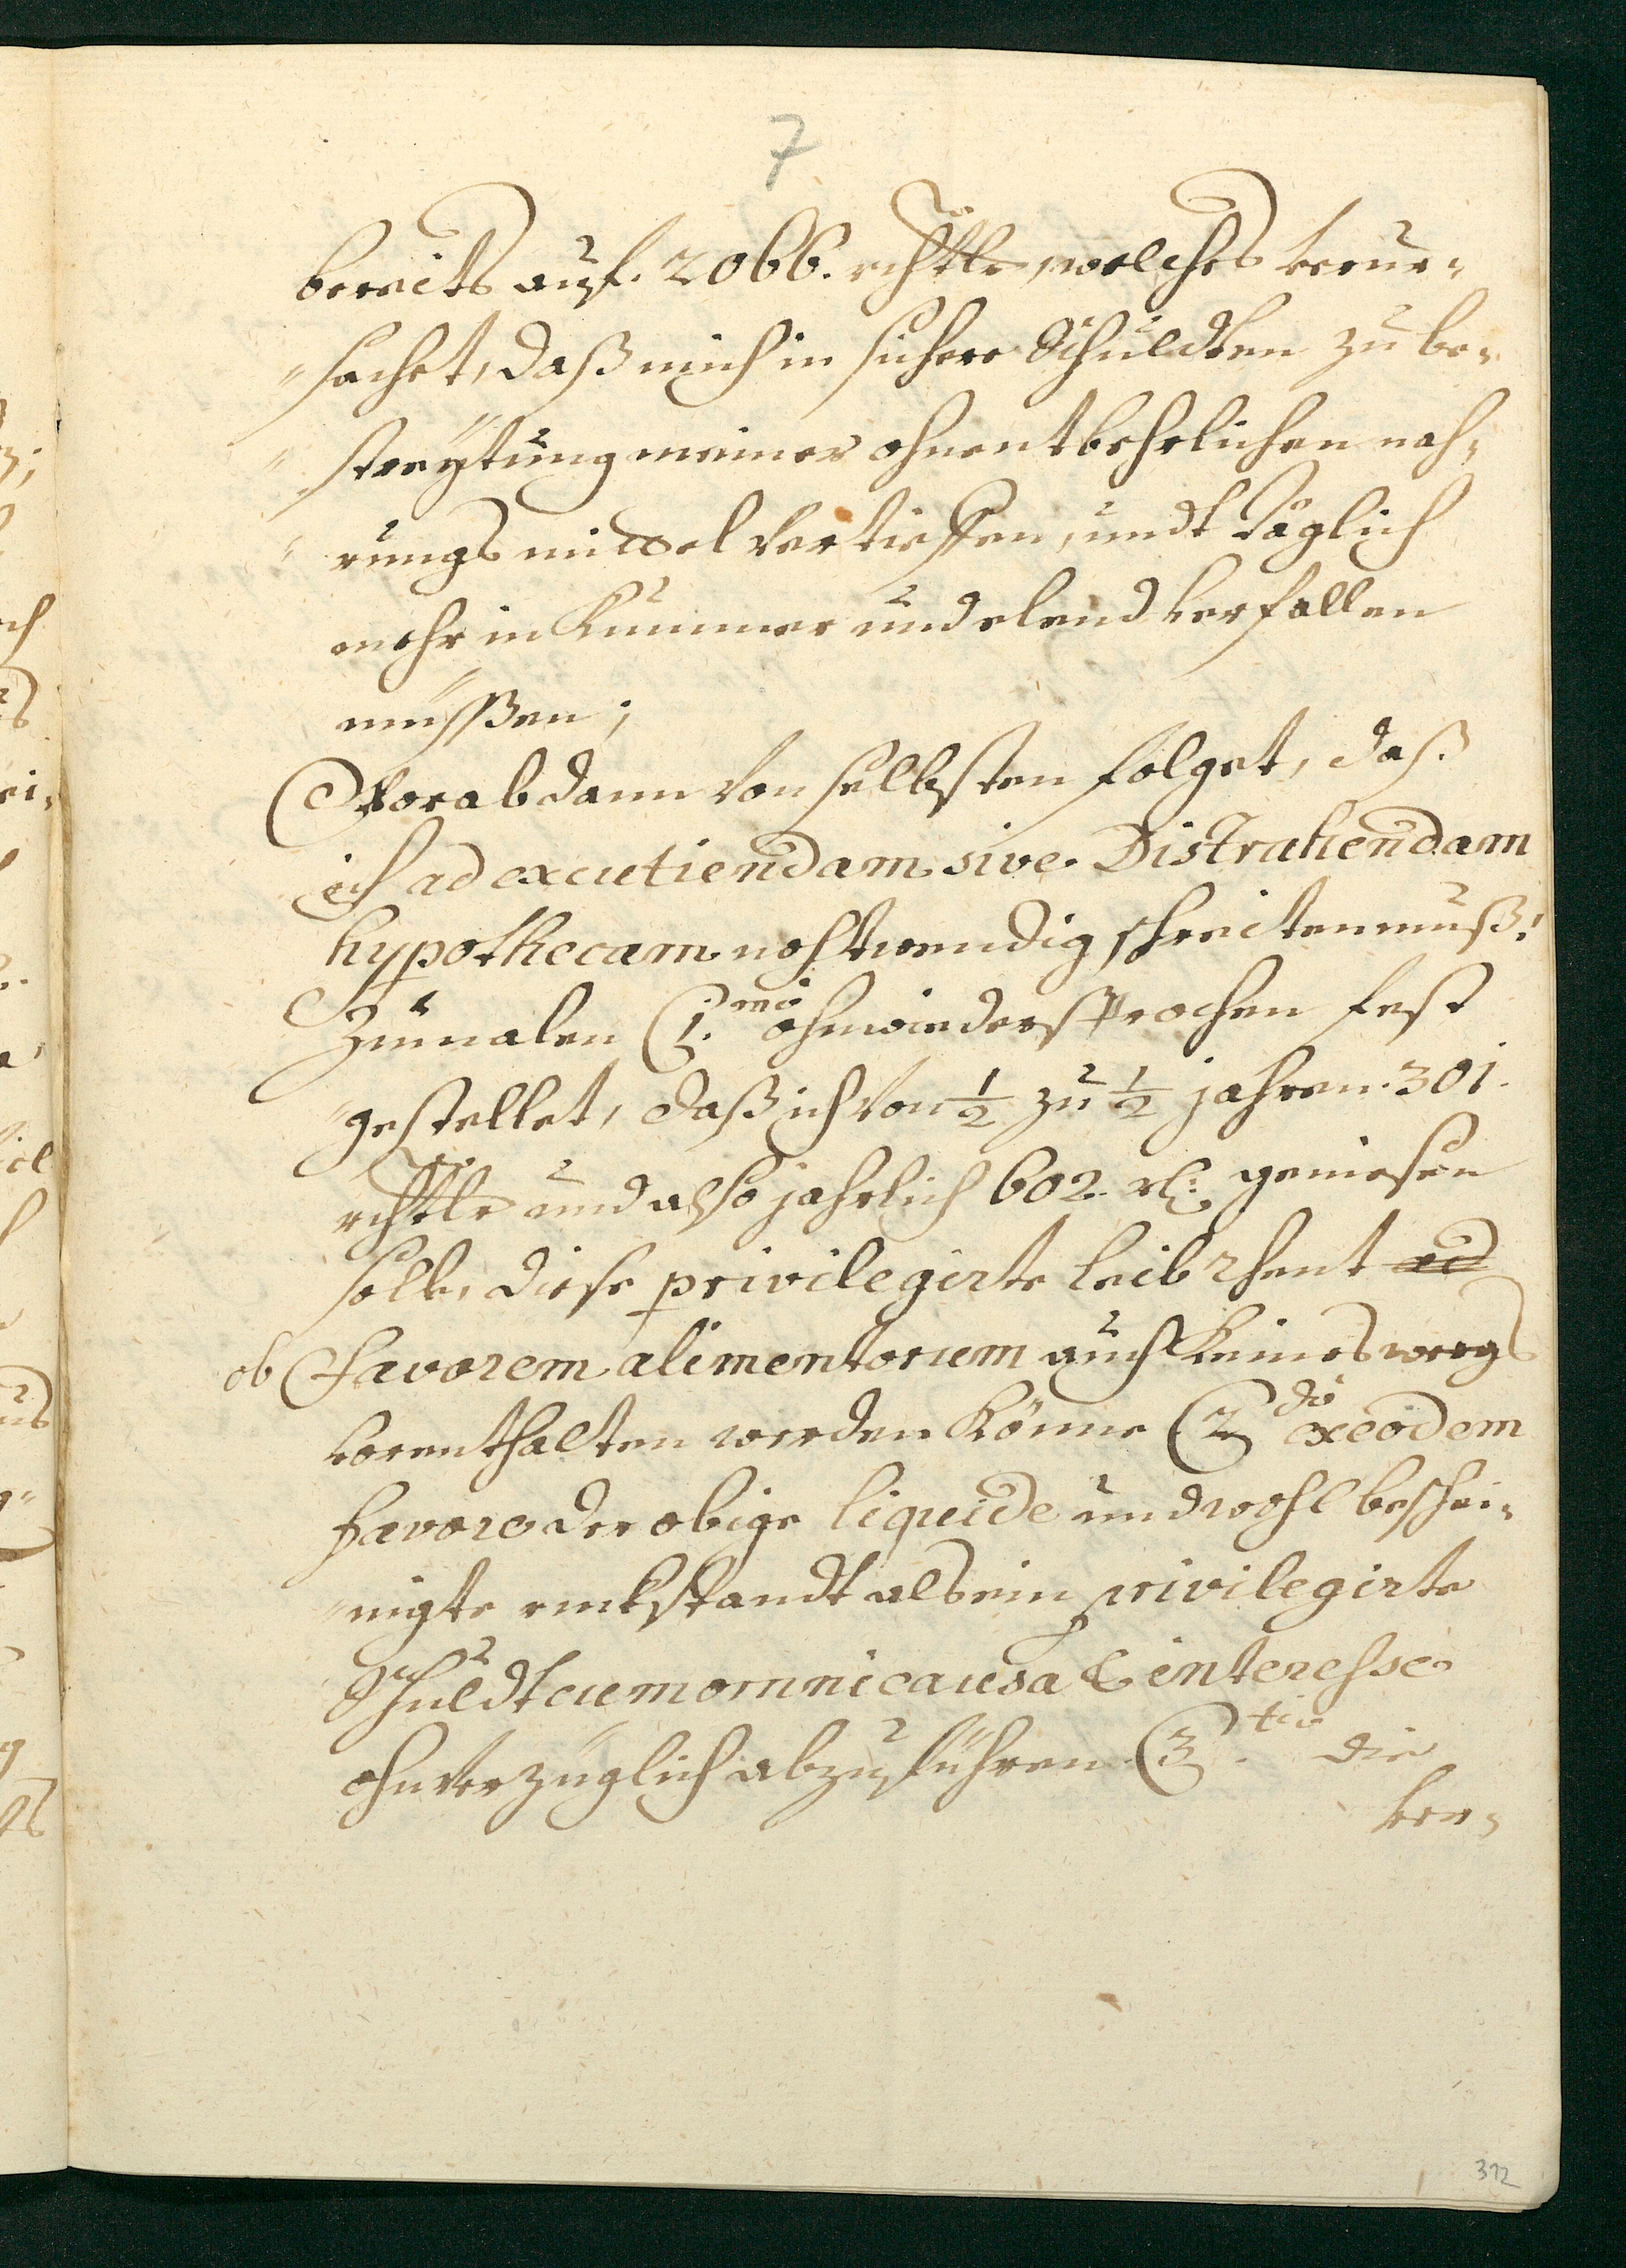 7
bereits auf. 2066. rchtlr welches verur-
"sachet, daß mich in sichere Schuldten zu be-
"streÿtung meiner ohnentbehrlichen nah-
"rungs mittel vertieffen, undt täglich
mehr in Kummer und elend verfallen
müssßen;
Worab dann von selbsten folget, daß
ich ad excutiendam sive Distrahendam
hypothecam nohtwendig schreiten muß!
Zumalen 1.mò ohnwiedersprochen fest
"gestellet, daß ich von ½ zu ½ jahren 301.
rchtlr und also jahrlich 602. rl: geniesen
solle, diese privilegirte leib rhent ad
ob favorem alimentorum auch keines weegs
vorenthalten werden könne 2dò ex eodem
favore der obige liquide und wohl beschei-
"nigte ruckstandt als ein privilegirte
Schuldt cum omni causa & interesse
ohnverzüglich abzuführen 3.tiò die
ver-
312